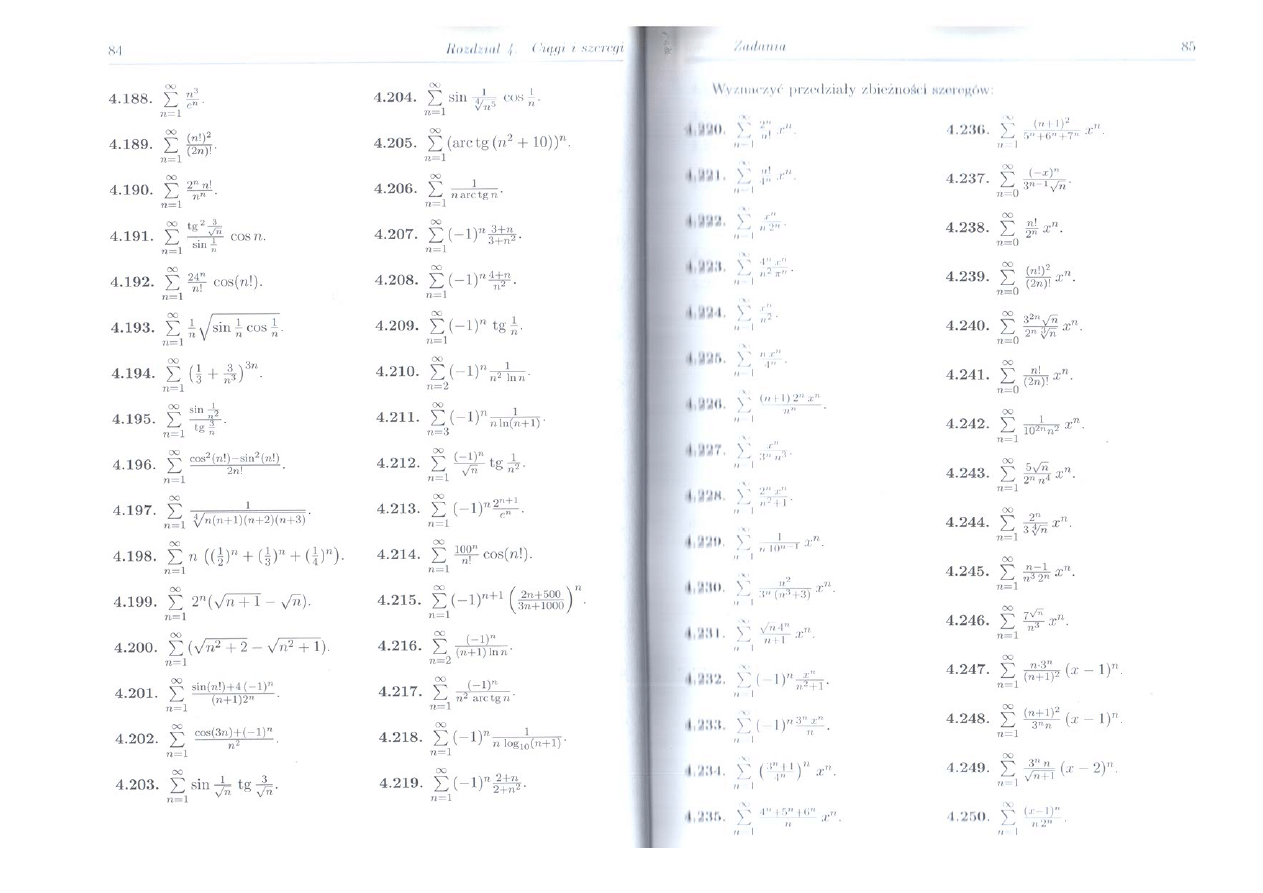 84 Rozdział 4. Ciągi i szeregi
4.188. ∑_{n=1}^{∞} n³/eⁿ.
4.189. ∑_{n=1}^{∞} (n!)²/(2n)!.
4.190. ∑_{n=1}^{∞} 2ⁿ n!/nⁿ.
4.191. ∑_{n=1}^{∞} (tg² 3/√n)/(sin 1/n) cos n.
4.192. ∑_{n=1}^{∞} 24ⁿ/n! cos(n!).
4.193. ∑_{n=1}^{∞} 1/n √(sin 1/n cos 1/n).
4.194. ∑_{n=1}^{∞} (1/3 + 3/n³)^{3n}.
4.195. ∑_{n=1}^{∞} (sin 1/n²)/(tg 3/n).
4.196. ∑_{n=1}^{∞} (cos²(n!)−sin²(n!))/2n!.
4.197. ∑_{n=1}^{∞} 1/∜(n(n+1)(n+2)(n+3)).
4.198. ∑_{n=1}^{∞} n ((1/2)ⁿ + (1/3)ⁿ + (1/4)ⁿ).
4.199. ∑_{n=1}^{∞} 2ⁿ(√(n+1) − √n).
4.200. ∑_{n=1}^{∞} (√(n²+2) − √(n²+1)).
4.201. ∑_{n=1}^{∞} (sin(n!)+4(−1)ⁿ)/((n+1)2ⁿ).
4.202. ∑_{n=1}^{∞} (cos(3n)+(−1)ⁿ)/n².
4.203. ∑_{n=1}^{∞} sin 1/√n tg 3/√n.
4.204. ∑_{n=1}^{∞} sin 1/∜(n⁵) cos 1/n.
4.205. ∑_{n=1}^{∞} (arc tg (n² + 10))ⁿ.
4.206. ∑_{n=1}^{∞} 1/(n arc tg n).
4.207. ∑_{n=1}^{∞} (−1)ⁿ (3+n)/(3+n²).
4.208. ∑_{n=1}^{∞} (−1)ⁿ (4+n)/n².
4.209. ∑_{n=1}^{∞} (−1)ⁿ tg 1/n.
4.210. ∑_{n=2}^{∞} (−1)ⁿ 1/(n² ln n).
4.211. ∑_{n=3}^{∞} (−1)ⁿ 1/(n ln(n+1)).
4.212. ∑_{n=1}^{∞} (−1)ⁿ/√n tg 1/n².
4.213. ∑_{n=1}^{∞} (−1)ⁿ 2^{n+1}/eⁿ.
4.214. ∑_{n=1}^{∞} 100ⁿ/n! cos(n!).
4.215. ∑_{n=1}^{∞} (−1)^{n+1} ((2n+500)/(3n+1000))ⁿ.
4.216. ∑_{n=2}^{∞} (−1)ⁿ/((n+1) ln n).
4.217. ∑_{n=1}^{∞} (−1)ⁿ/(n² arc tg n).
4.218. ∑_{n=1}^{∞} (−1)ⁿ 1/(n log₁₀(n+1)).
4.219. ∑_{n=1}^{∞} (−1)ⁿ (2+n)/(2+n²).
Zadania 85
Wyznaczyć przedziały zbieżności szeregów:
4.220. ∑_{n=1}^{∞} 2ⁿ/n! xⁿ.
4.221. ∑_{n=1}^{∞} n!/4ⁿ xⁿ.
4.222. ∑_{n=1}^{∞} xⁿ/(n 2ⁿ).
4.223. ∑_{n=1}^{∞} 4ⁿ xⁿ/(n² πⁿ).
4.224. ∑_{n=1}^{∞} xⁿ/n².
4.225. ∑_{n=1}^{∞} n xⁿ/4ⁿ.
4.226. ∑_{n=1}^{∞} (n+1) 2ⁿ xⁿ/nⁿ.
4.227. ∑_{n=1}^{∞} xⁿ/(3ⁿ n³).
4.228. ∑_{n=1}^{∞} 2ⁿ xⁿ/(n²+1).
4.229. ∑_{n=1}^{∞} 1/(n 10^{n−1}) xⁿ.
4.230. ∑_{n=1}^{∞} n²/(3ⁿ (n³+3)) xⁿ.
4.231. ∑_{n=1}^{∞} √n 4ⁿ/(n+1) xⁿ.
4.232. ∑_{n=1}^{∞} (−1)ⁿ xⁿ/(n²+1).
4.233. ∑_{n=1}^{∞} (−1)ⁿ 3ⁿ xⁿ/n.
4.234. ∑_{n=1}^{∞} ((3ⁿ+1)/4ⁿ)ⁿ xⁿ.
4.235. ∑_{n=1}^{∞} (4ⁿ+5ⁿ+6ⁿ)/n xⁿ.
4.236. ∑_{n=1}^{∞} (n+1)²/(5ⁿ+6ⁿ+7ⁿ) xⁿ.
4.237. ∑_{n=0}^{∞} (−x)ⁿ/(3^{n−1}√n).
4.238. ∑_{n=0}^{∞} n!/2ⁿ xⁿ.
4.239. ∑_{n=0}^{∞} (n!)²/(2n)! xⁿ.
4.240. ∑_{n=0}^{∞} 3^{2n}√n/(2ⁿ ∛n) xⁿ.
4.241. ∑_{n=0}^{∞} n!/(2n)! xⁿ.
4.242. ∑_{n=1}^{∞} 1/(10^{2n} n²) xⁿ.
4.243. ∑_{n=1}^{∞} 5√n/(2ⁿ n⁴) xⁿ.
4.244. ∑_{n=1}^{∞} 2ⁿ/(3 ∜n) xⁿ.
4.245. ∑_{n=1}^{∞} (n−1)/(n³ 2ⁿ) xⁿ.
4.246. ∑_{n=1}^{∞} 7^{√n}/n³ xⁿ.
4.247. ∑_{n=1}^{∞} n·3ⁿ/(n+1)² (x − 1)ⁿ.
4.248. ∑_{n=1}^{∞} (n+1)²/(3ⁿn) (x − 1)ⁿ.
4.249. ∑_{n=1}^{∞} 3ⁿ n/√(n+1) (x − 2)ⁿ.
4.250. ∑_{n=1}^{∞} (x−1)ⁿ/(n 2ⁿ).